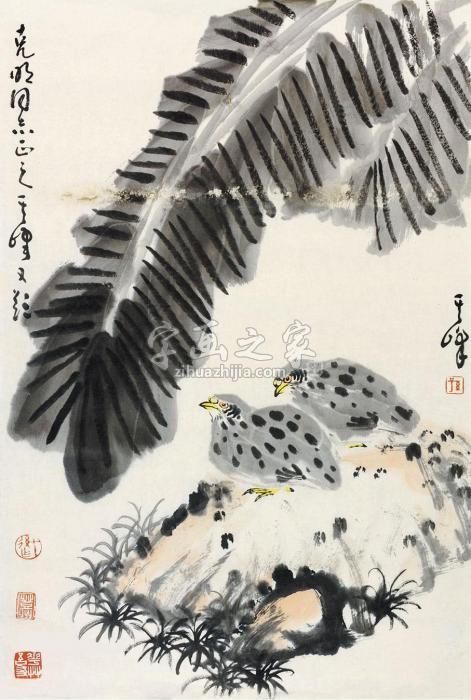 克明同志正之其峰又题
其峰
字画之家
zihuazhijia.com